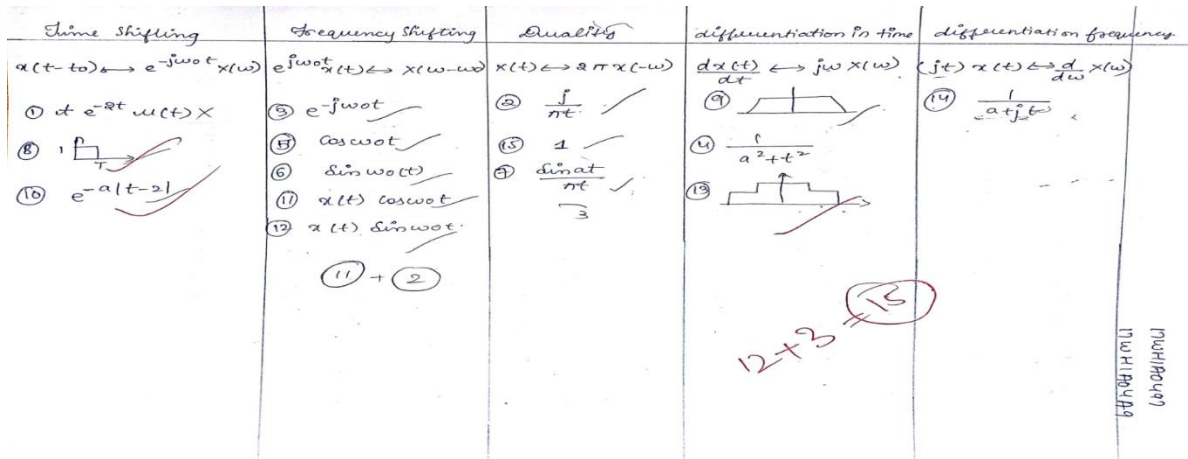 Time Shifting
x(t-to) ↔ e^-jwot x(w)
① t e^-2t u(t) X
⑧ 1 T
⑩ e^-a|t-2|
Frequency Shifting
e^jwot x(t) ↔ x(w-wo)
③ e^-jwot
⑤ coswot
⑥ Sin wo(t)
⑪ x(t) coswot
⑫ x(t) Sinwot.
⑪ + ②
Duality
x(t) ↔ 2πx(-w)
② j/πt
⑮ 1
⑦ Sinat/πt
3
differentiation in time
dx(t)/dt ↔ jw x(w)
⑨
④ 1/a²+t²
⑬
12+3=15
differentiation frequency
(jt) x(t) ↔ d/dw x(w)
⑭ 1/a+jt
17WH1A0497
17WH1A04A9